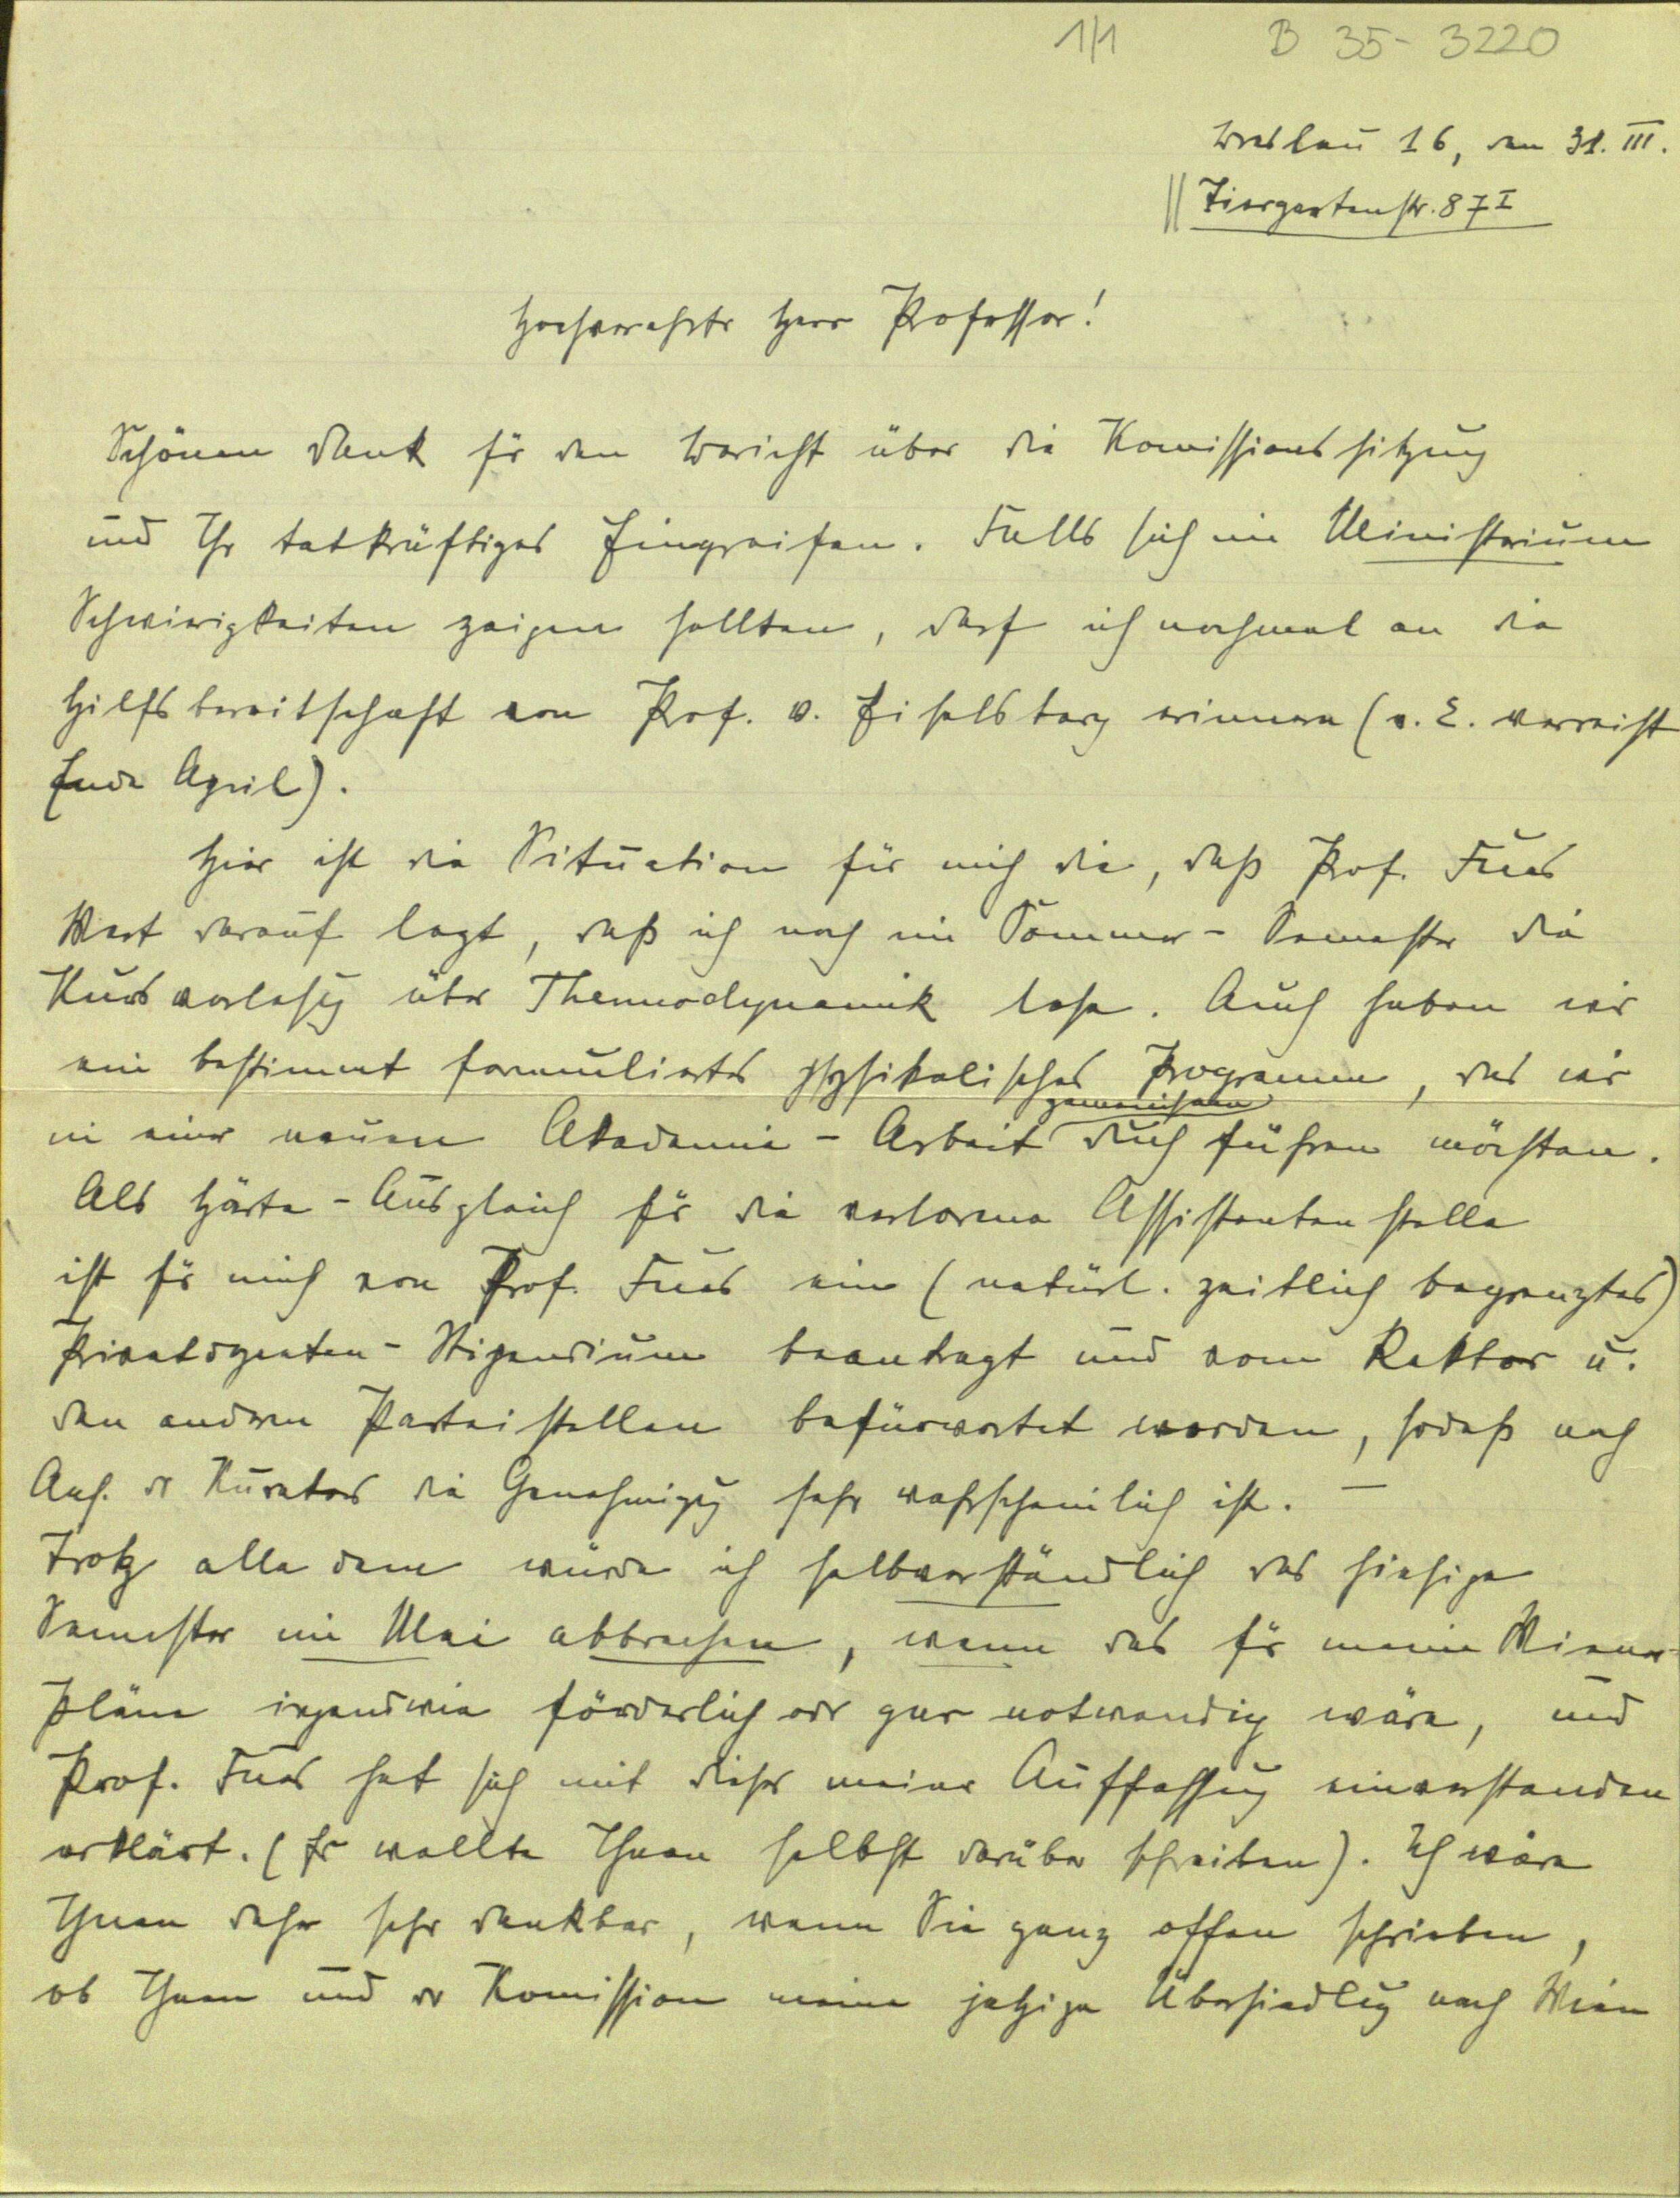 1/1 B 35-3220
Breslau 16, den 31. III.
Tiergartenstr. 87 I
Hochverehrter Herr Professor!
Schönen Dank für den Bericht über die Komissionssitzung
und Ihr tatkräftiges Eingreifen. Falls sich im Ministerium
Schwierigkeiten zeigen sollten, darf ich nochmal an die
Hilfsbereitschaft von Prof. v. Eiselsberg erinnern (v. E. verreist
Ende April).
Hier ist die Situation für mich die, daß Prof. Fues
Wert darauf legt, daß ich noch im Sommer-Semester die
Kursvorlesung über Thermodynamik lese. Auch haben wir
ein bestimmt formuliertes physikalisches Programm, das wir
gemeinsam
in einer neuen Akademie-Arbeit durchführen möchten.
Als Härte-Ausgleich für die verlorene Assistentenstelle
ist für mich von Prof. Fues ein (natürl. zeitlich begrenztes)
Privatdozenten-Stipendium beantragt und vom Rektor u.
den anderen Parteistellen befürwortet worden, sodaß nach
Ans. der Kurators die Genehmigung sehr wahrscheinlich ist. —
Trotz alledem würde ich selbverständlich das hiesige
Semester im Mai abbrechen, wenn das für meine Wiener-
Pläne irgendwie förderlich oder gar notwendig wäre, und
Prof. Fues hat sich mit dieser meiner Auffassung einverstanden
erklärt. (Er wollte Ihnen selbst darüber schreiben). Ich wäre
Ihnen daher sehr dankbar, wenn Sie ganz offen schrieben,
ob Ihnen und der Komission meine jetzige Übersiedlung nach Wien